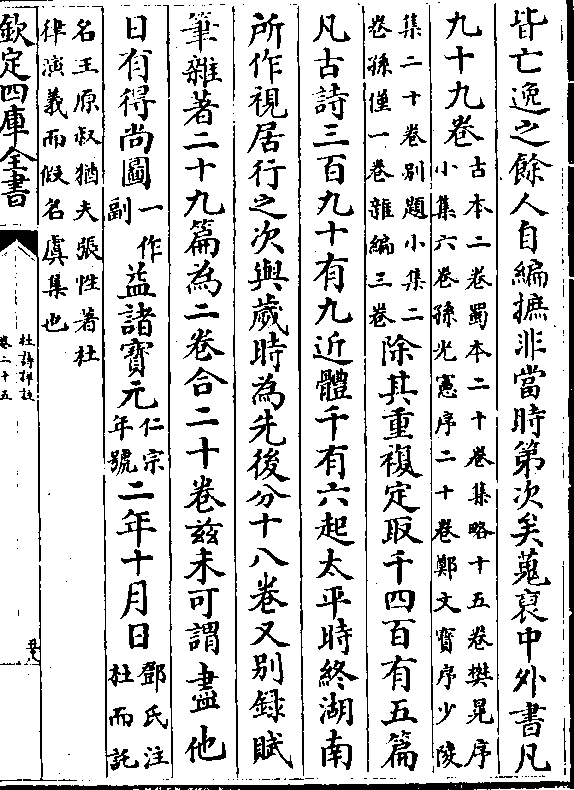 皆亡逸之餘人自編摭非當時第次矣蒐裒中外書凡
九十九卷古本二卷蜀本二十卷集略十五卷樊晃序
小集六卷孫光憲序二十卷鄭文寶序少陵
集二十卷别題小集二
卷孫僅一卷雜編三卷除其重複定取千四百有五篇
凡古詩三百九十有九近體千有六起太平時終湖南
所作視居行之次與歲時為先後分十八卷又别録賦
筆雜著二十九篇為二卷合二十卷兹未可謂盡他
日有得尚圖一作
副益諸寶元仁宗
年號二年十月日鄧氏注
杜而託
名王原叔猶夫張性著杜
律演義而假名虞集也
欽定四庫全書
杜詩詳註
卷二十五